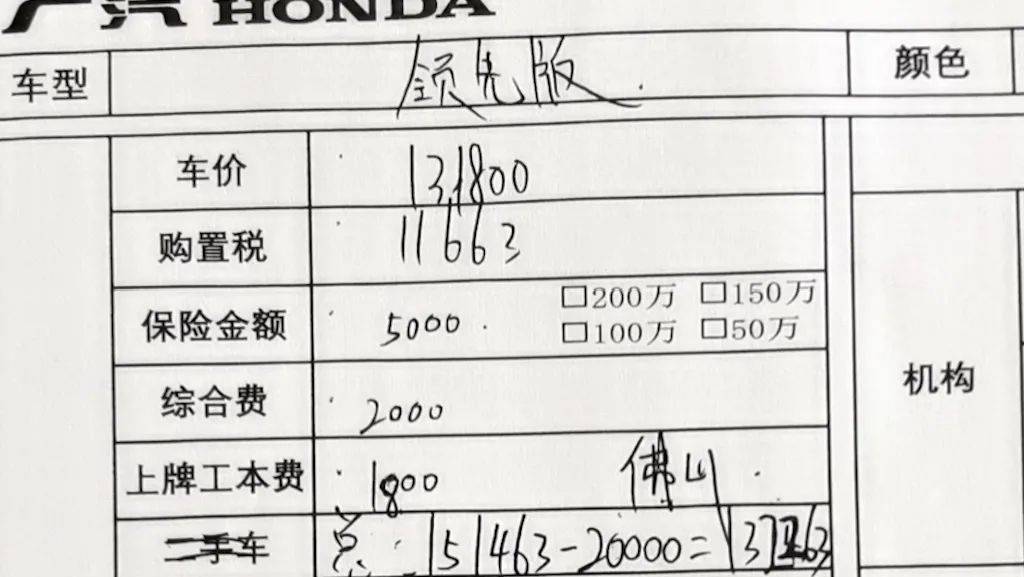 广汽 HONDA
车型 领先版 颜色
车价 131800
购置税 11663
保险金额 5000 □200万 □150万
□100万 □50万
综合费 2000
机构
上牌工本费 1800 佛山
二手车 总: 151463-20000=